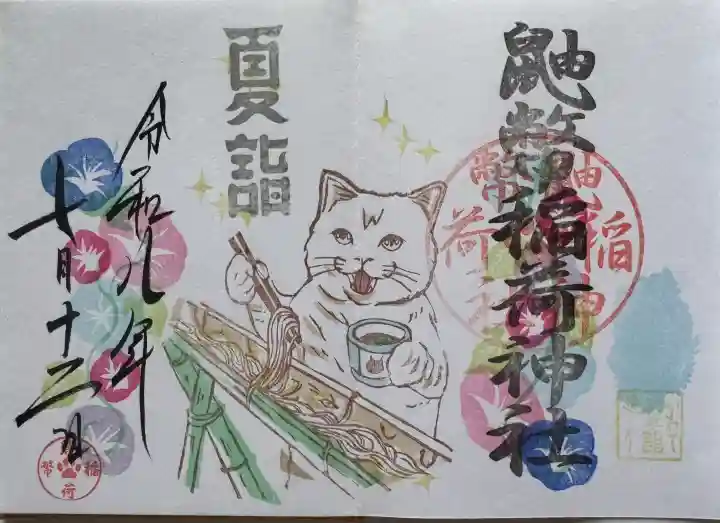 鼬幣稲荷神社
鼬幣
稲荷
神社
夏詣
令和八年
七月十二日
稲荷